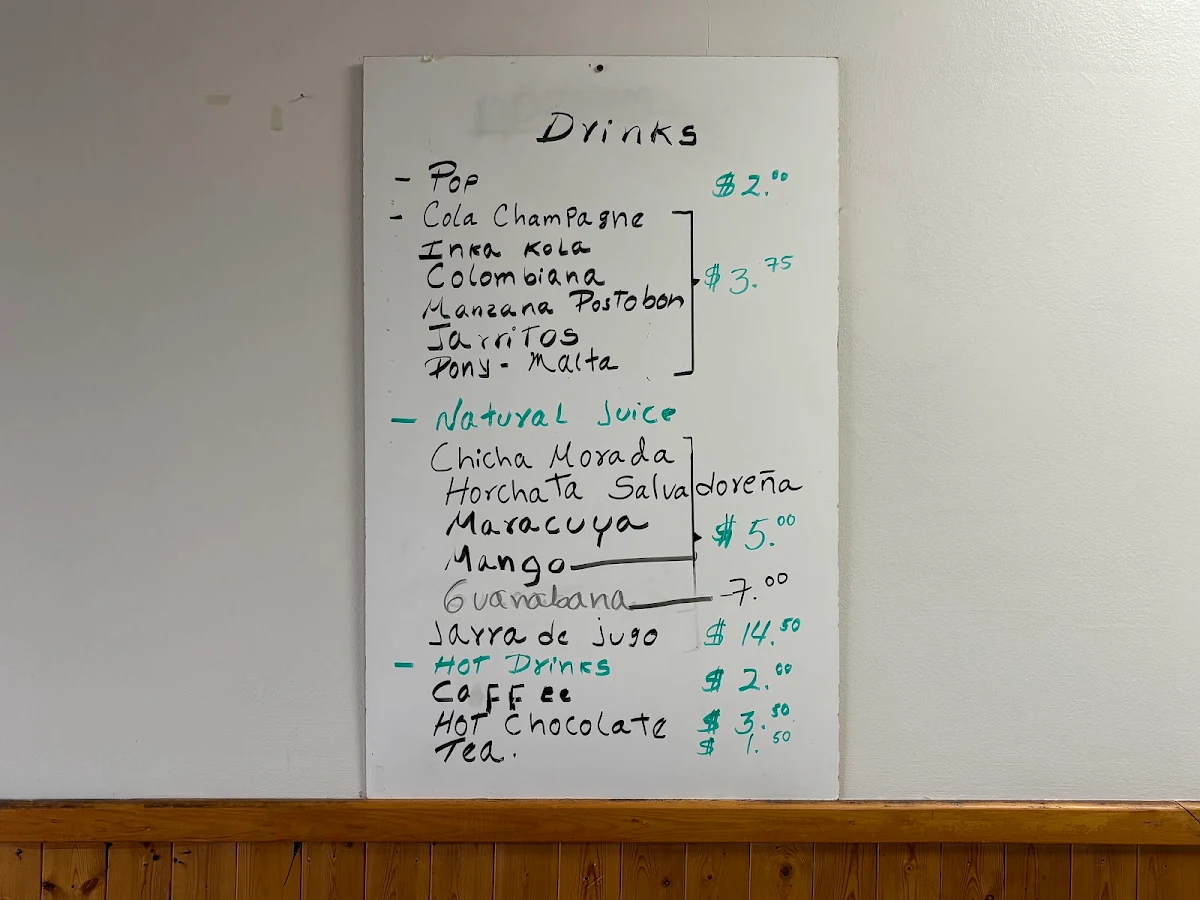 Drinks
- Pop $2.00
- Cola Champagne
Inka Kola
Colombiana $3.75
Manzana Postobon
Jarritos
Pony - Malta
- Natural Juice
Chicha Morada
Horchata Salvadoreña
Maracuya $5.00
Mango
Guanabana 7.00
Jarra de jugo $14.50
- Hot Drinks
Caffee $2.00
Hot Chocolate $3.50
Tea. $1.50